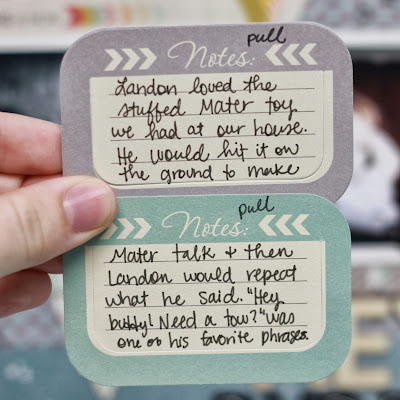 pull
Notes:
Landon loved the
stuffed Mater toy
we had at our house.
He would hit it on
the ground to make
pull
Notes:
Mater talk + then
Landon would repeat
what he said. "Hey
buddy! Need a tow?" was
one of his favorite phrases.